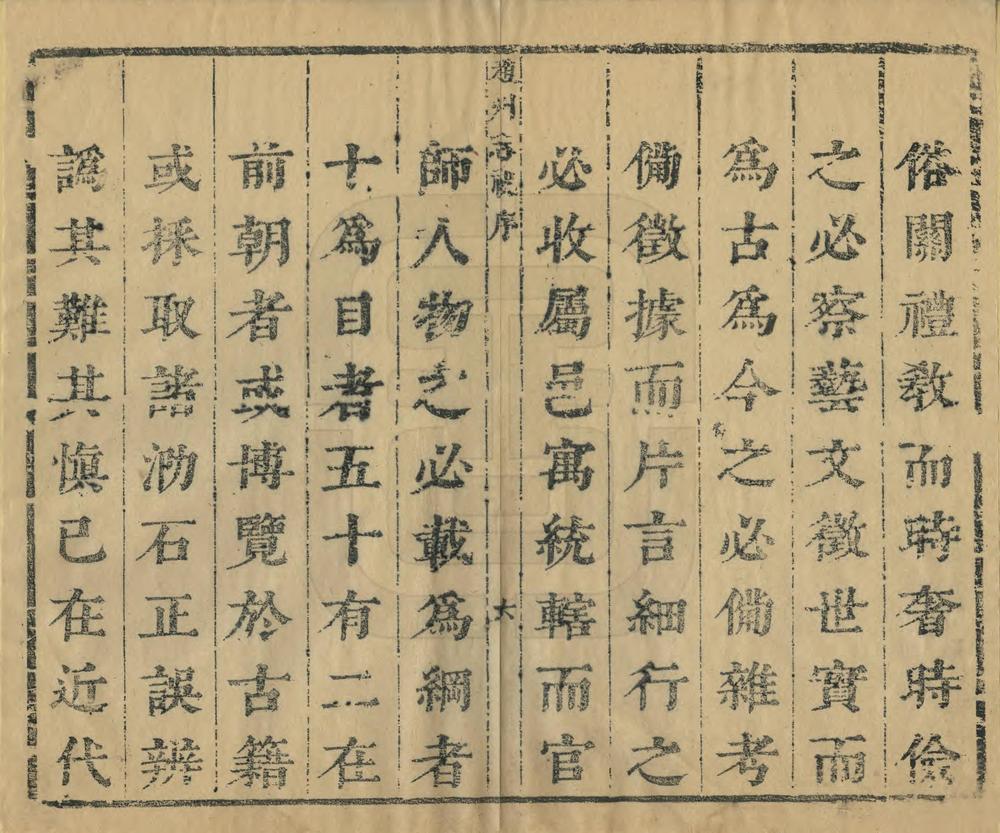 俗關禮教而時奢時儉
之必察藝文徵世實而
爲古爲今之必備雜考
備徵據而片言細行之
必收屬邑寓統轄而官
趙州志敘序
六
師人物之必載爲綱者
十爲目者五十有二在
前朝者或博覽於古籍
或採取諸泐石正誤辨
譌其難其慎已在近代